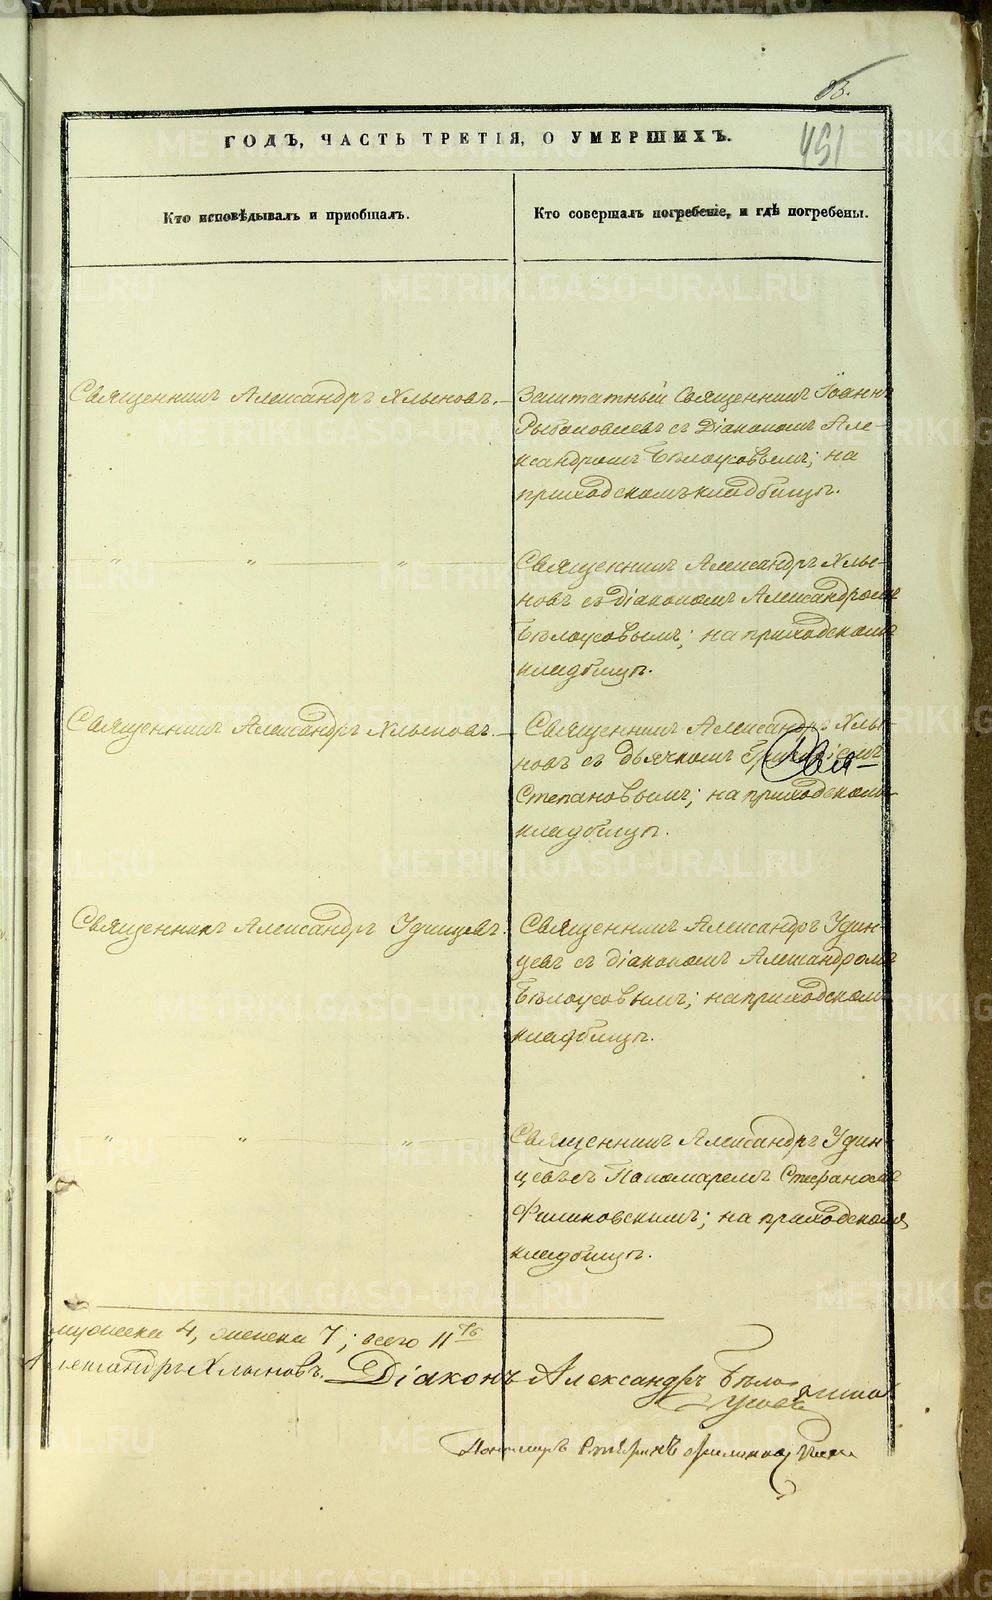 83.
451
ГОДЪ, ЧАСТЬ ТРЕТІЯ, О УМЕРШИХЪ.
Кто исповѣдывалъ и пріобщалъ.
Кто совершалъ погребеніе, и гдѣ погребены.
Священникъ Александръ Хлыновъ.
Заштатный Священникъ Іоаннъ
съ Діакономъ Але-
ксандромъ Бѣлоусовымъ; на
приходскомъ кладбищѣ.
" " "
Священникъ Александръ Хлы-
новъ съ діакономъ Александромъ
Бѣлоусовымъ; на приходскомъ
кладбищѣ.
Священникъ Александръ Хлыновъ.
Священникъ Александръ Хлы-
новъ съ дьячкомъ
Степановымъ; на приходскомъ
кладбищѣ.
Священникъ Александръ Удинцевъ.
Священникъ Александръ Удин-
цевъ съ діакономъ Александромъ
Бѣлоусовымъ; на приходскомъ
кладбищѣ.
" " "
Священникъ Александръ Удин-
цевъ съ Пономаремъ Стефаномъ
Филиновскимъ; на приходскомъ
кладбищѣ.
мужеска 4, женска 7; всего 11ть
лександръ Хлыновъ. Діаконъ Александръ Бѣло
усовъ
Пономарь
METRIKI.GASO-URAL.RU